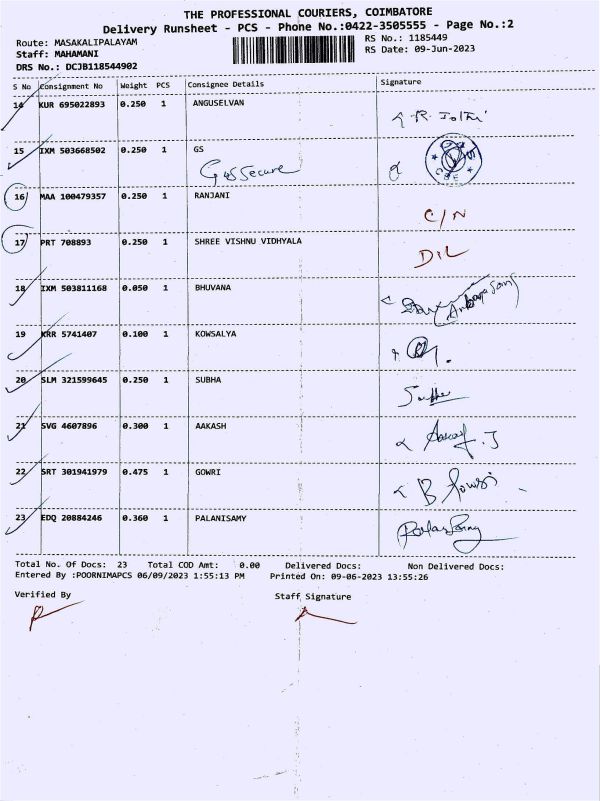 THE PROFESSIONAL COURIERS, COIMBATORE
Delivery Runsheet - PCS - Phone No.:0422-3505555 - Page No.:2
Route: MASAKALIPALAYAM
RS No.: 1185449
Staff: MAHAMANI
RS Date: 09-Jun-2023
DRS No.: DCJB118544902
S No Consignment No Weight PCS Consignee Details Signature
14 KUR 695022893 0.250 1 ANGUSELVAN
15 IXM 503668502 0.250 1 GS
16 MAA 100479357 0.250 1 RANJANI
C/N
17 PRT 708893 0.250 1 SHREE VISHNU VIDHYALA
D/L
18 IXM 503811168 0.050 1 BHUVANA
19 KRR 5741407 0.100 1 KOWSALYA
20 SLM 321599645 0.250 1 SUBHA
21 SVG 4607896 0.300 1 AAKASH
22 SRT 301941979 0.475 1 GOWRI
23 EDQ 20884246 0.360 1 PALANISAMY
Total No. Of Docs: 23 Total COD Amt: 0.00 Delivered Docs: Non Delivered Docs:
Entered By :POORNIMAPCS 06/09/2023 1:55:13 PM Printed On: 09-06-2023 13:55:26
Verified By Staff Signature